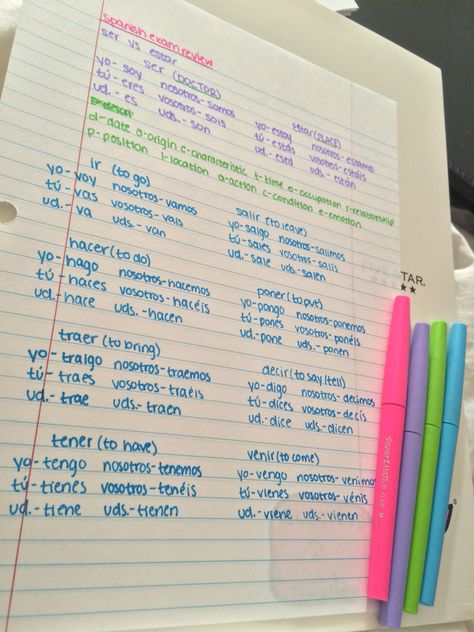 spanish exam review
ser vs estar
ser (DOCTOR)
yo - soy nosotros - somos
tú - eres vosotros - sois
ud. - es uds. - son
estar (PLACE)
yo - estoy nosotros - estamos
tú - estás vosotros - estáis
ud. - está uds. - están
d - date o - origin c - characteristic t - time o - occupation r - relationship
p - position l - location a - action c - condition e - emotion
ir (to go)
yo - voy nosotros - vamos
tú - vas vosotros - vais
ud. - va uds. - van
salir (to leave)
yo - salgo nosotros - salimos
tú - sales vosotros - salís
ud. - sale uds - salen
hacer (to do)
yo - hago nosotros - hacemos
tú - haces vosotros - hacéis
ud. - hace uds. - hacen
poner (to put)
yo - pongo nosotros - ponemos
tú - pones vosotros - ponéis
ud. - pone uds. - ponen
traer (to bring)
yo - traigo nosotros - traemos
tú - traes vosotros - traéis
ud. - trae uds. - traen
decir (to say/tell)
yo - digo nosotros - decimos
tú - dices vosotros - decís
ud. - dice uds. - dicen
tener (to have)
yo - tengo nosotros - tenemos
tú - tienes vosotros - tenéis
ud. - tiene uds. - tienen
venir (to come)
yo - vengo nosotros - venimos
tú - vienes vosotros - vénis
ud. - viene uds. - vienen
TAR.